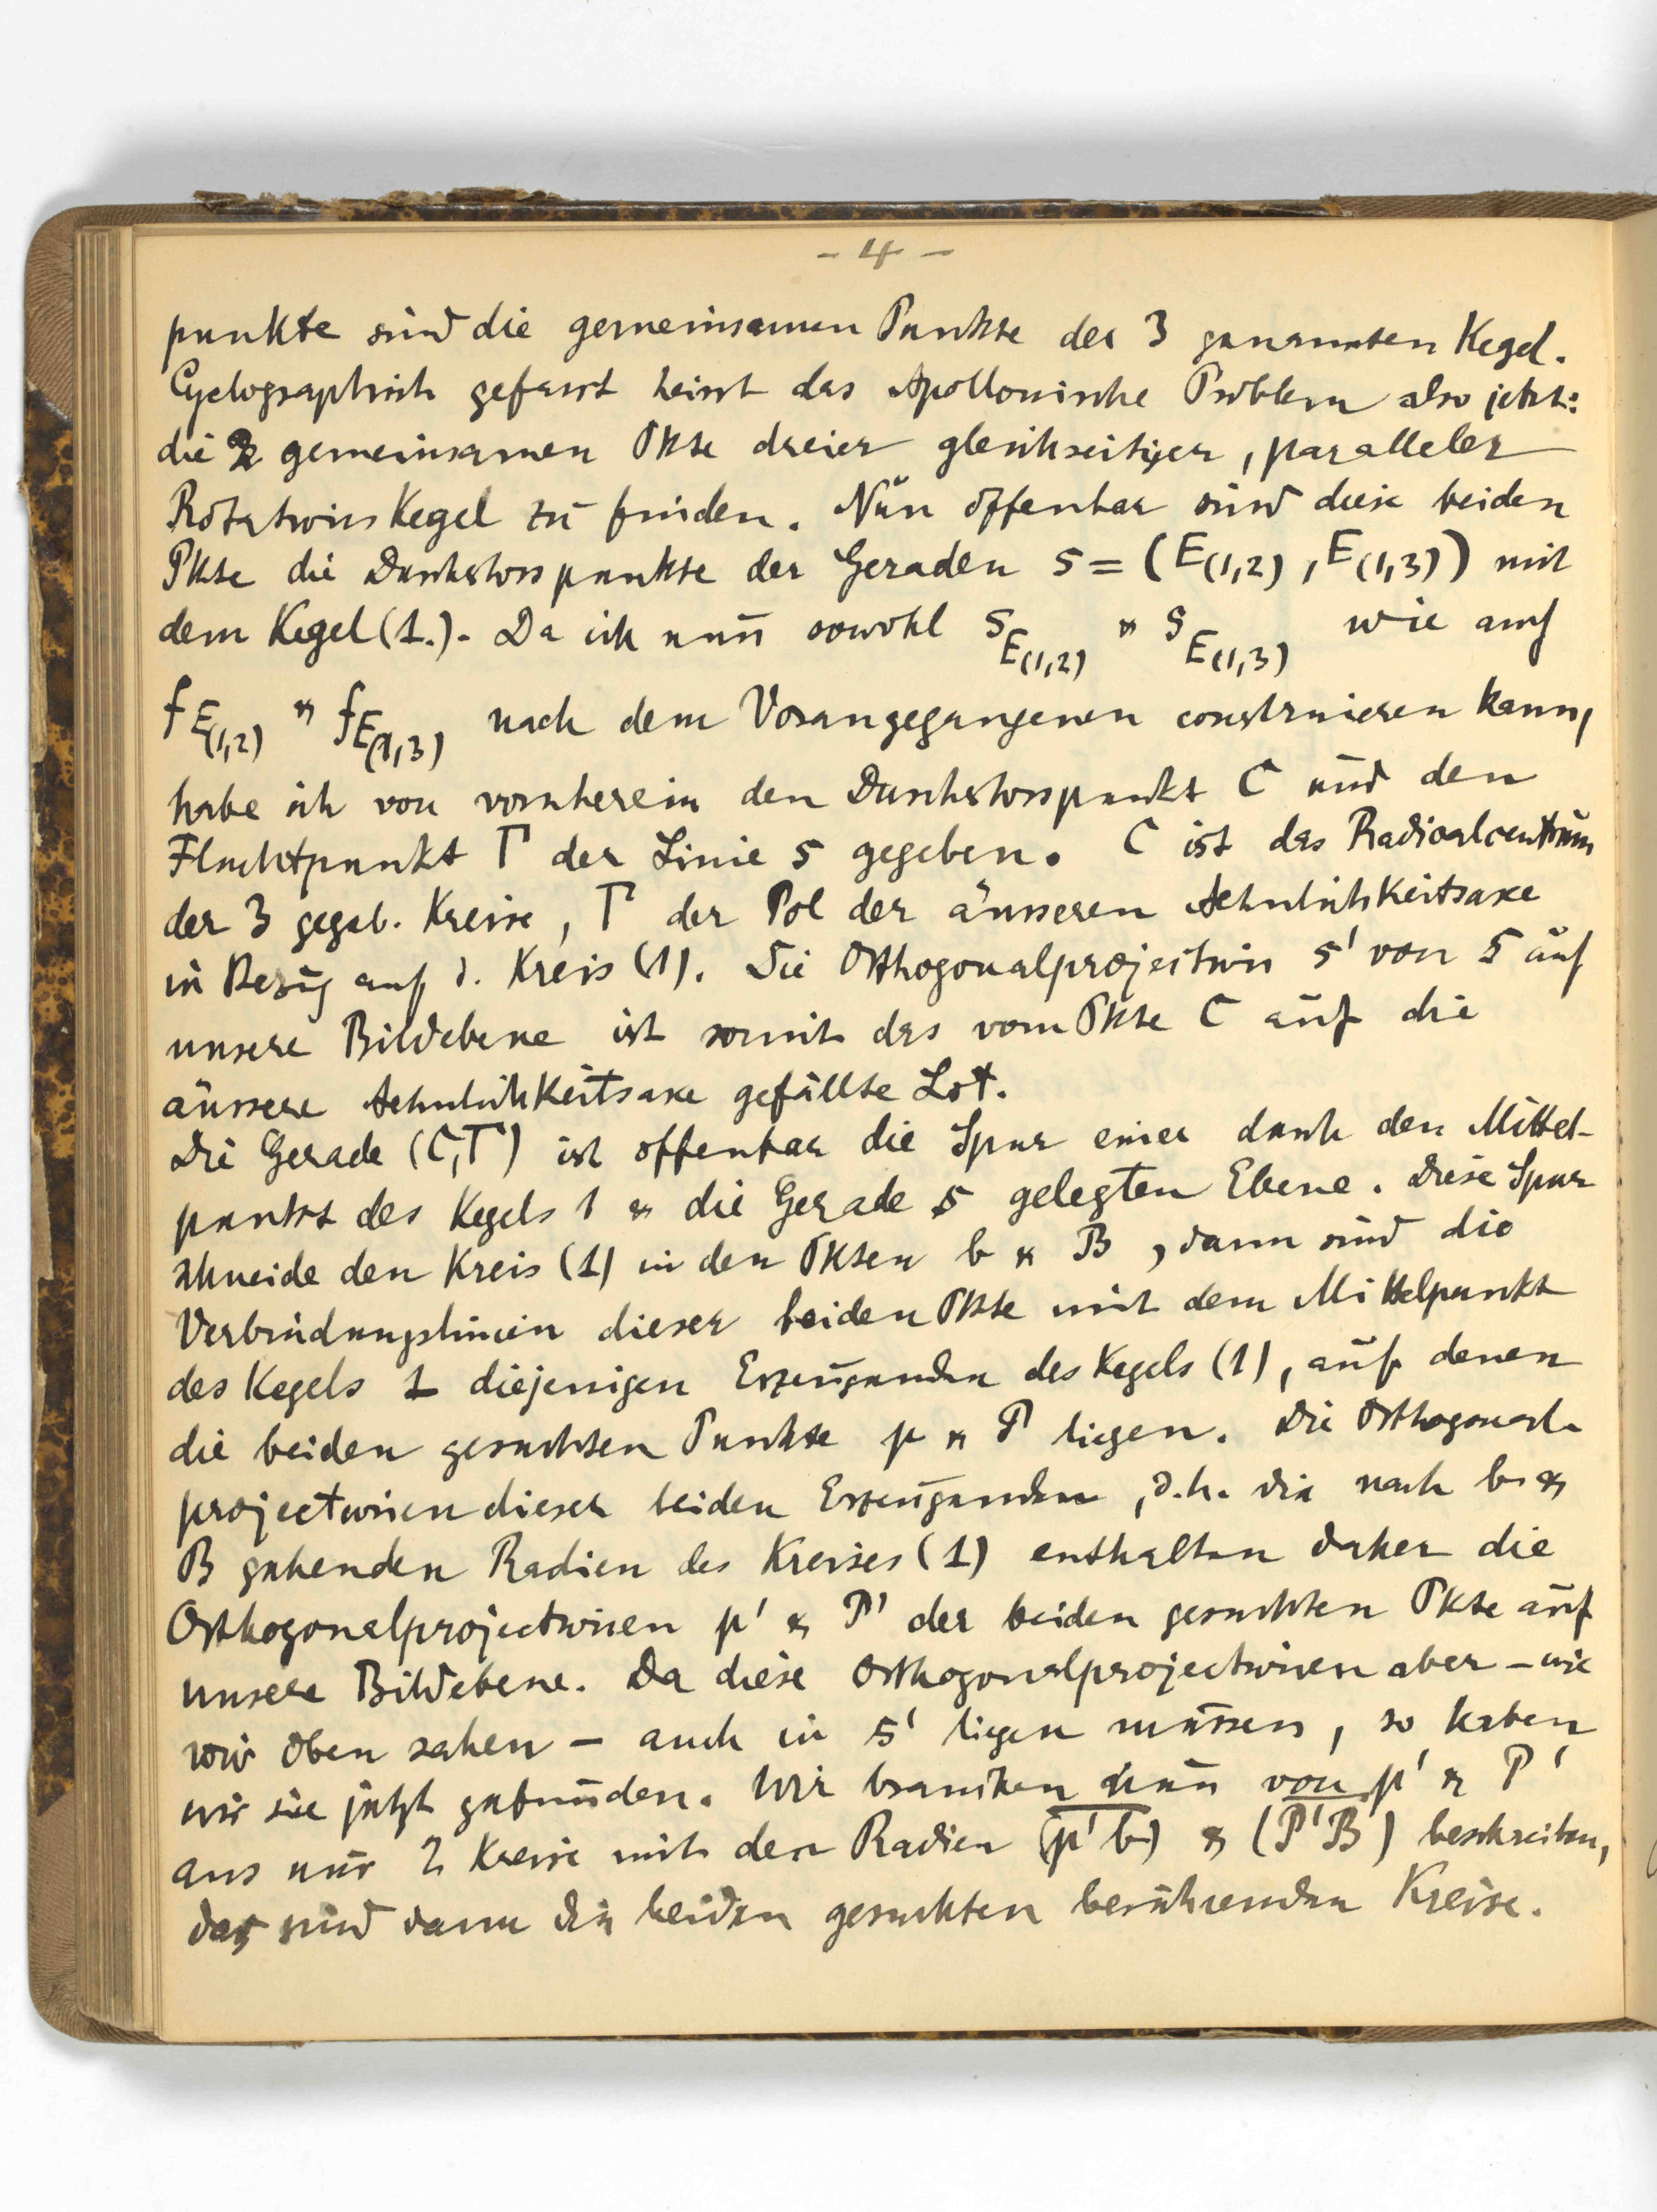 - 4 -
punkte sind die gemeinsamen Punkte der 3 genannten Kegel.
Cyclographisch gefasst heisst das Apollonische Problem also jetzt:
die 2 gemeinsamen Pkte dreier gleichseitiger, paralleler
Rotations Kegel zu finden. Nun offenbar sind diese beiden
Pkte die Durchstosspunkte der Geraden s = (E(1,2), E(1,3)) mit
dem Kegel (1.). Da ich nun sowohl s_E(1,2) & s_E(1,3) wie auch
f_E(1,2) & f_E(1,3) nach dem Vorangegangenen construieren kann,
habe ich von vornherein den Durchstosspunkt C und den
Fluchtpunkt Γ der Linie s gegeben. C ist das Radicalcentrum
der 3 gegeb. Kreise, Γ der Pol der äusseren Aehnlichkeitsaxe
in Bezug auf d. Kreis (1). Die Orthogonalprojection s' von s auf
unsere Bildebene ist somit das vom Pkte C auf die
äussere Aehnlichkeitsaxe gefällte Lot.
Die Gerade (C,Γ) ist offenbar die Spur einer durch den Mittel-
punkt des Kegels 1 & die Gerade s gelegten Ebene. Diese Spur
schneide den Kreis (1) in den Pkten b & B, dann sind die
Verbindungslinien dieser beiden Pkte mit dem Mittelpunkt
des Kegels 1 diejenigen Erzeugenden des Kegels (1), auf denen
die beiden gesuchten Punkte p & P liegen. Die Orthogonal-
projectionen dieser beiden Erzeugenden, d.h. die nach b &
B gehenden Radien des Kreises (1) enthalten daher die
Orthogonalprojectionen p' & P' der beiden gesuchten Pkte auf
unsere Bildebene. Da diese Orthogonalprojectionen aber - wie
wir oben sahen - auch in s' liegen müssen, so haben
wir sie jetzt gefunden. Wir brauchen nun von p' & P'
aus nur 2 Kreise mit den Radien (p'b) & (P'B) beschreiben,
das sind dann die beiden gesuchten berührenden Kreise.